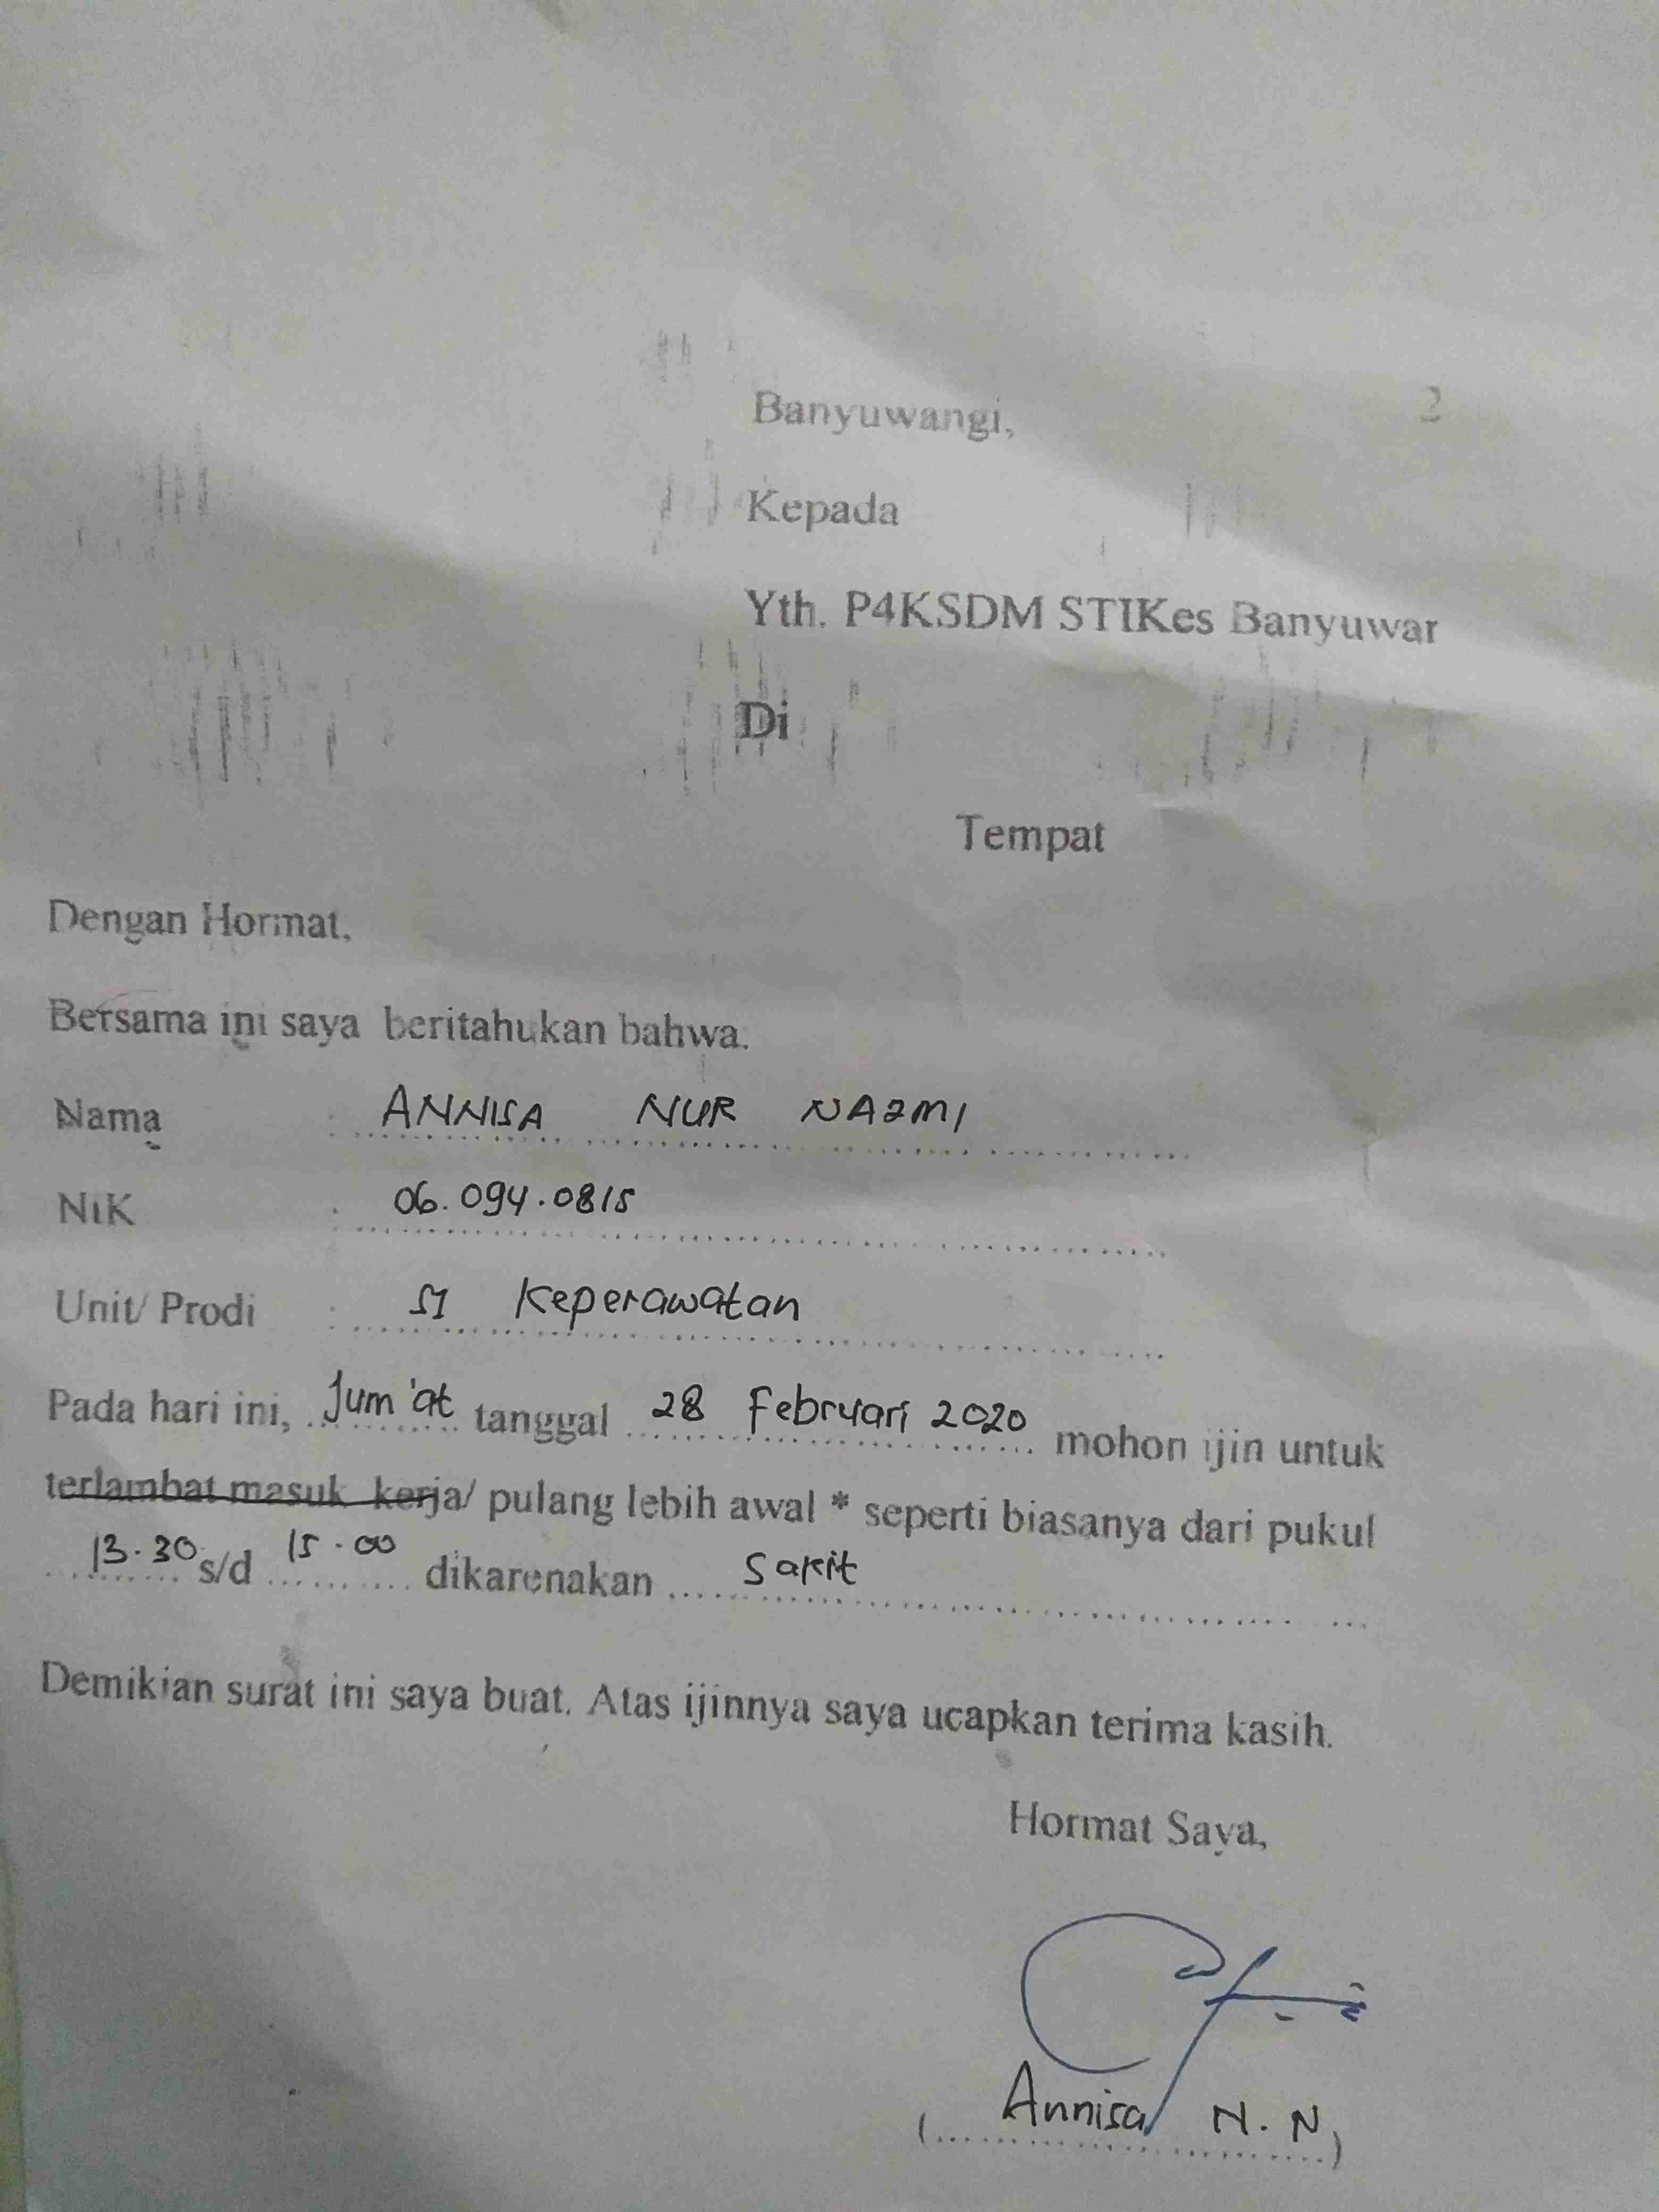 Banyuwangi, 2
Kepada
Yth. P4KSDM STIKes Banyuwar
Di
Tempat
Dengan Hormat,
Bersama ini saya beritahukan bahwa.
Nama : ANNISA NUR NAZMI
NIK : 06.094.0815
Unit/ Prodi : S1 Keperawatan
Pada hari ini, Jum'at tanggal 28 Februari 2020 mohon ijin untuk
terlambat masuk kerja/ pulang lebih awal * seperti biasanya dari pukul
13.30 s/d 15.00 dikarenakan Sakit
Demikian surat ini saya buat. Atas ijinnya saya ucapkan terima kasih.
Hormat Saya,
(Annisa N.N)